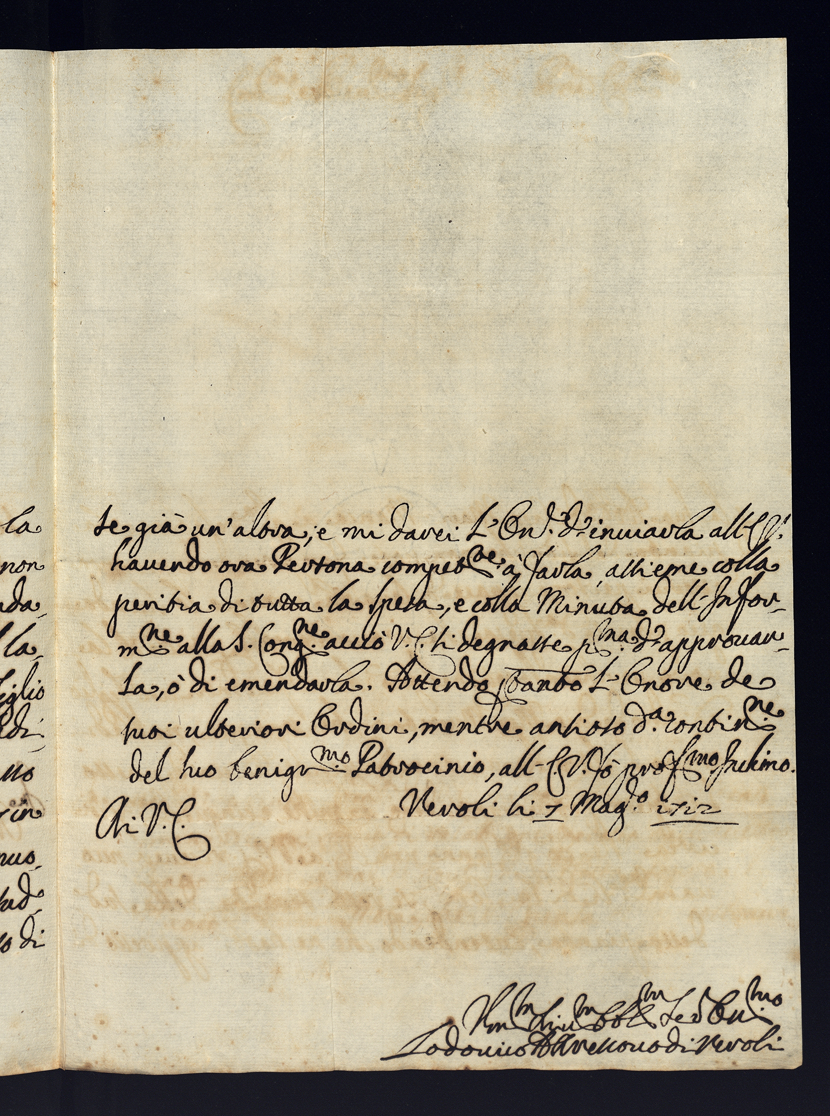 la
non
nda-
la-
iglio
edi
uo
in
nuo-
o di
se già un'altra, e mi darei L'On.r d'inviarla all'
havendo ora Persona compet.ne à farla, assieme colla
peritia di tutta la spesa, e colla Minuta dell'Infor-
m.ne alla S. Cong.ne acciò V. E. si degnasse p.ma d'approvar-
la, ò di emendarla. Attendo pertanto L'Onore de
suoi ulteriori Ordini, mentre ansioso d.a contin.ne
del suo benig.mo Patrocinio, all'E. V. fò prof.mo Inchino.
Di V. E.
Veroli li 7 Mag.o 1712
Hum.o Div.mo Obb. Ser.
Lodovico Vescovo di Veroli